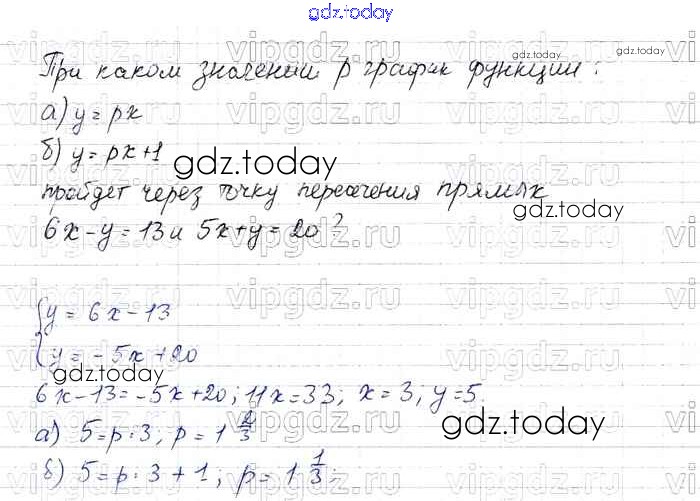 gdz.today
При каком значении р график функции:
gdz.today
gdz.today
а) y = px
vipgdz.ru vipgdz.ru vipgdz.ru
б) y = px+1
gdz.today
пройдет через точку пересечения прямых
gdz.today
6x – y = 13 и 5x + y = 20?
vipgdz.ru vipgdz.ru vipgdz.ru
{y = 6x – 13
{y = –5x + 20
gdz.today
6x – 13 = –5x + 20; 11x = 33; x = 3; y = 5.
а) 5 = p · 3; p = 1 2/3
gdz.today
б) 5 = p · 3 + 1; p = 1 1/3.